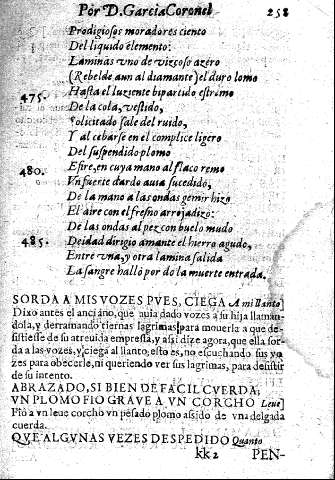 Por D. Garcia Coronel 258
Prodigiosos moradores ciento
Del liquido elemento:
Laminas vno de viscoso azero
(Rebelde aun al diamante) el duro lomo
475. Hasta el luziente bipartido estremo
De la cola, vestido,
Solicitado sale del ruido,
Y al cebarse en el complice ligero
Del suspendido plomo
480. Efire, en cuya mano al flaco remo
Vn fuerte dardo auia sucedido,
De la mano a las ondas gemir hizo
El aire con el fresno arrojadizo:
De las ondas al pez con buelo mudo
485. Deidad dirigio amante el hierro agudo,
Entre vna, y otra lamina salida
La sangre halló por do la muerte entrada.
SORDA A MIS VOZES PVES, CIEGA A mi llanto]
Dixo antes el anciano, que auia dado vozes a su hija llaman-
dola, y derramando tiernas lagrimas para mouerla a que de-
sistiesse de su atreuida empressa, y assi dize agora, que ella sor-
da a las vozes, y ciega al llanto; esto es, no escuchando sus vo
zes para obedecerle, ni queriendo ver sus lagrimas, para desistir
de su intento.
ABRAZADO, SI BIEN DE FACIL CVERDA;
VN PLOMO FIO GRAVE A VN CORCHO Leue]
Fiò a vn leue corcho vn pesado plomo assido de vna delgada
cuerda.
QVE ALGVNAS VEZES DESPEDIDO Quanto
kk 2 PEN-